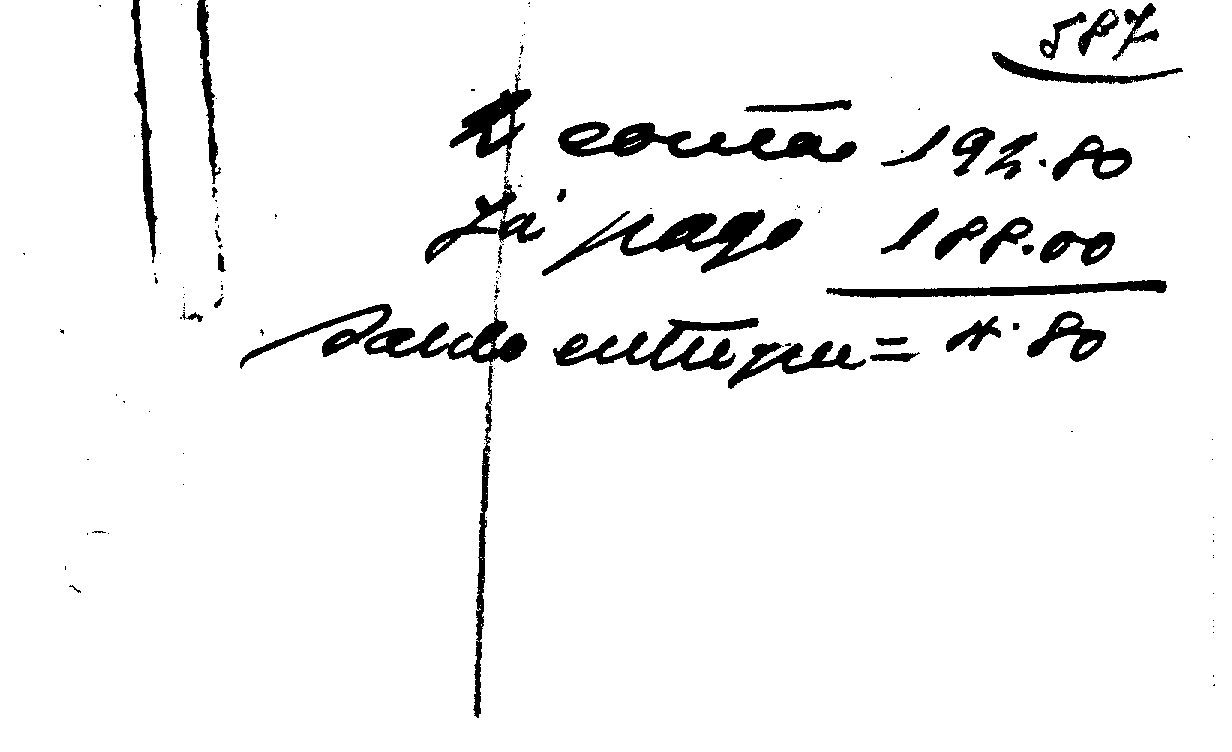 587
2 contas 192.80
Já pago 188.00
saldo entregue = 4.80